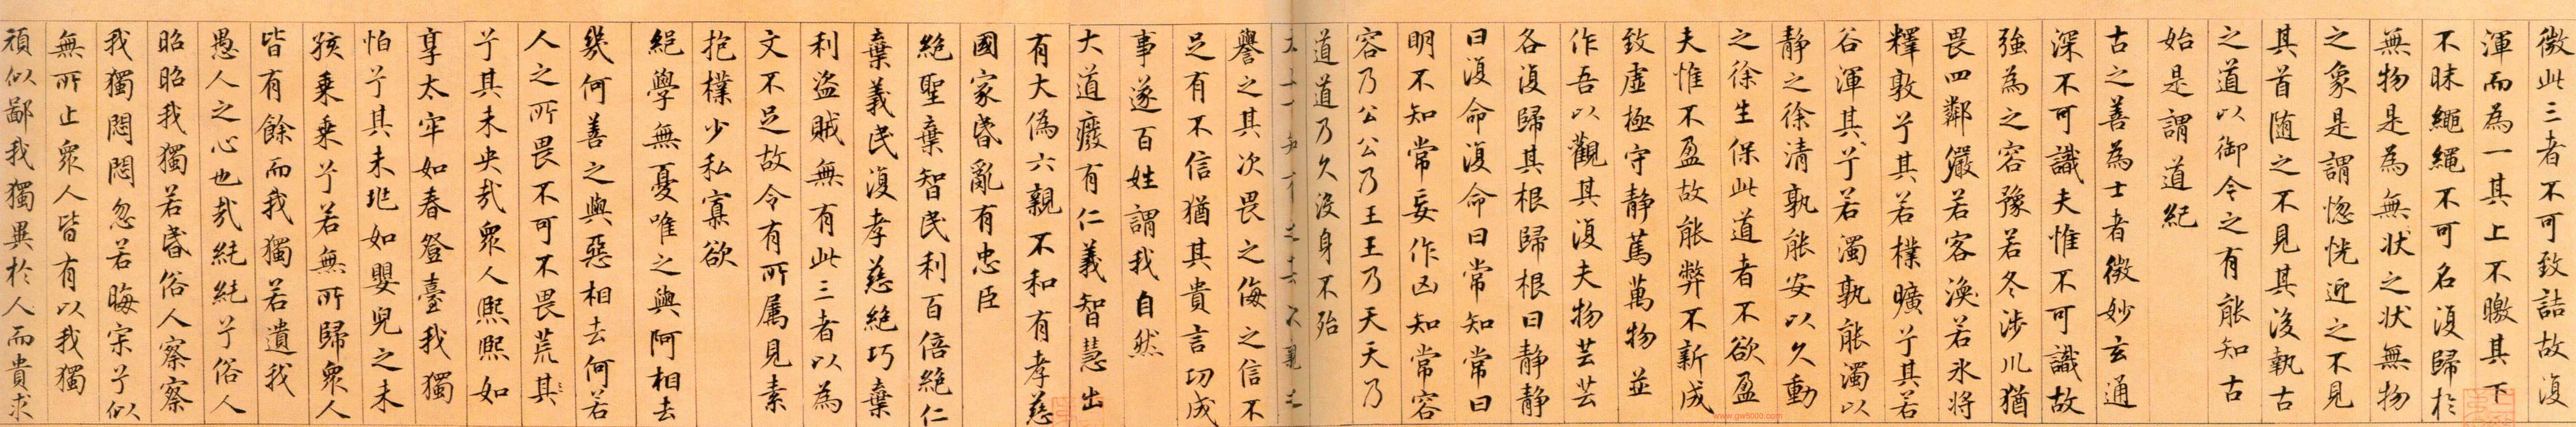 微此三者不可致詰故復
渾而為一其上不曒其下
不昧繩繩不可名復歸於
無物是為無狀之状無物
之象是謂惚恍迎之不見
其首随之不見其後執古
之道以御今之有能知古
始是謂道紀
古之善為士者微妙玄通
深不可識夫惟不可識故
強為之容豫若冬涉川猶
畏四鄰儼若客渙若氷將
釋敦兮其若樸曠兮其若
谷渾其兮若濁孰能濁以
静之徐清孰能安以久動
之徐生保此道者不欲盈
夫惟不盈故能弊不新成
致虛極守静篤萬物並
作吾以觀其復夫物芸芸
各復歸其根歸根曰静静
曰復命復命曰常知常曰
明不知常妄作凶知常容
容乃公公乃王王乃天天乃
道道乃久没身不殆
太上下知有之其次親之
譽之其次畏之侮之信不
足有不信猶其貴言功成
事遂百姓謂我自然
大道廢有仁義智慧出
有大偽六親不和有孝慈
國家昏亂有忠臣
絶聖棄智民利百倍絶仁
棄義民復孝慈絶巧棄
利盜賊無有此三者以為
文不足故令有所屬見素
抱樸少私寡欲
絶學無憂唯之與阿相去
幾何善之與惡相去何若
人之所畏不可不畏荒其
兮其未央哉衆人熙熙如
享太牢如春登臺我獨
怕兮其未兆如嬰兒之未
孩乗乗兮若無所歸衆人
皆有餘而我獨若遺我
愚人之心也哉純純兮俗人
昭昭我獨若昏俗人察察
我獨悶悶忽若晦宋兮似
無所止衆人皆有以我獨
頑似鄙我獨異於人而貴求
www.gw5000.com